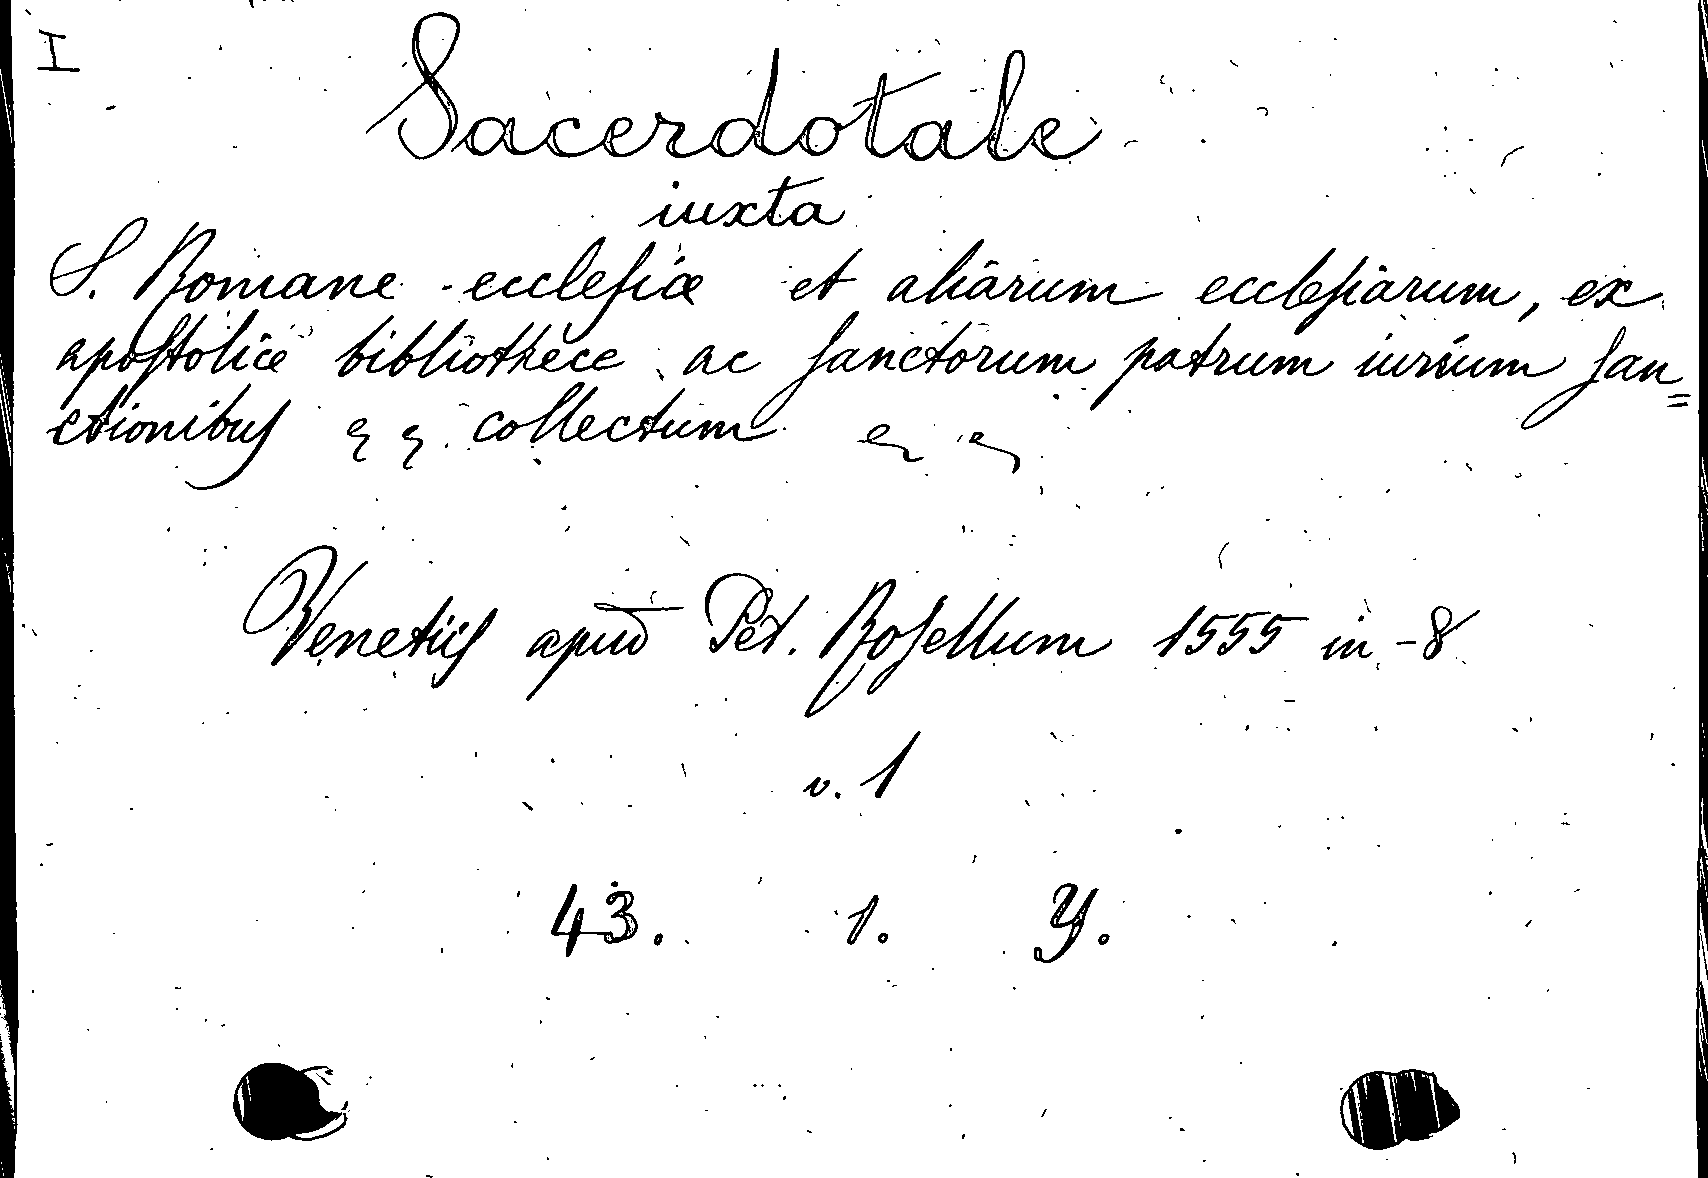 I
Sacerdotale
iuxta
S. Romane ecclesiæ et aliarum ecclesiarum, ex
apostolice bibliothece ac sanctorum patrum iurium san=
ctionibus collectum
Venetiis apud Pet. Bosellum 1555 in -8
v. 1
43. 1. Y.